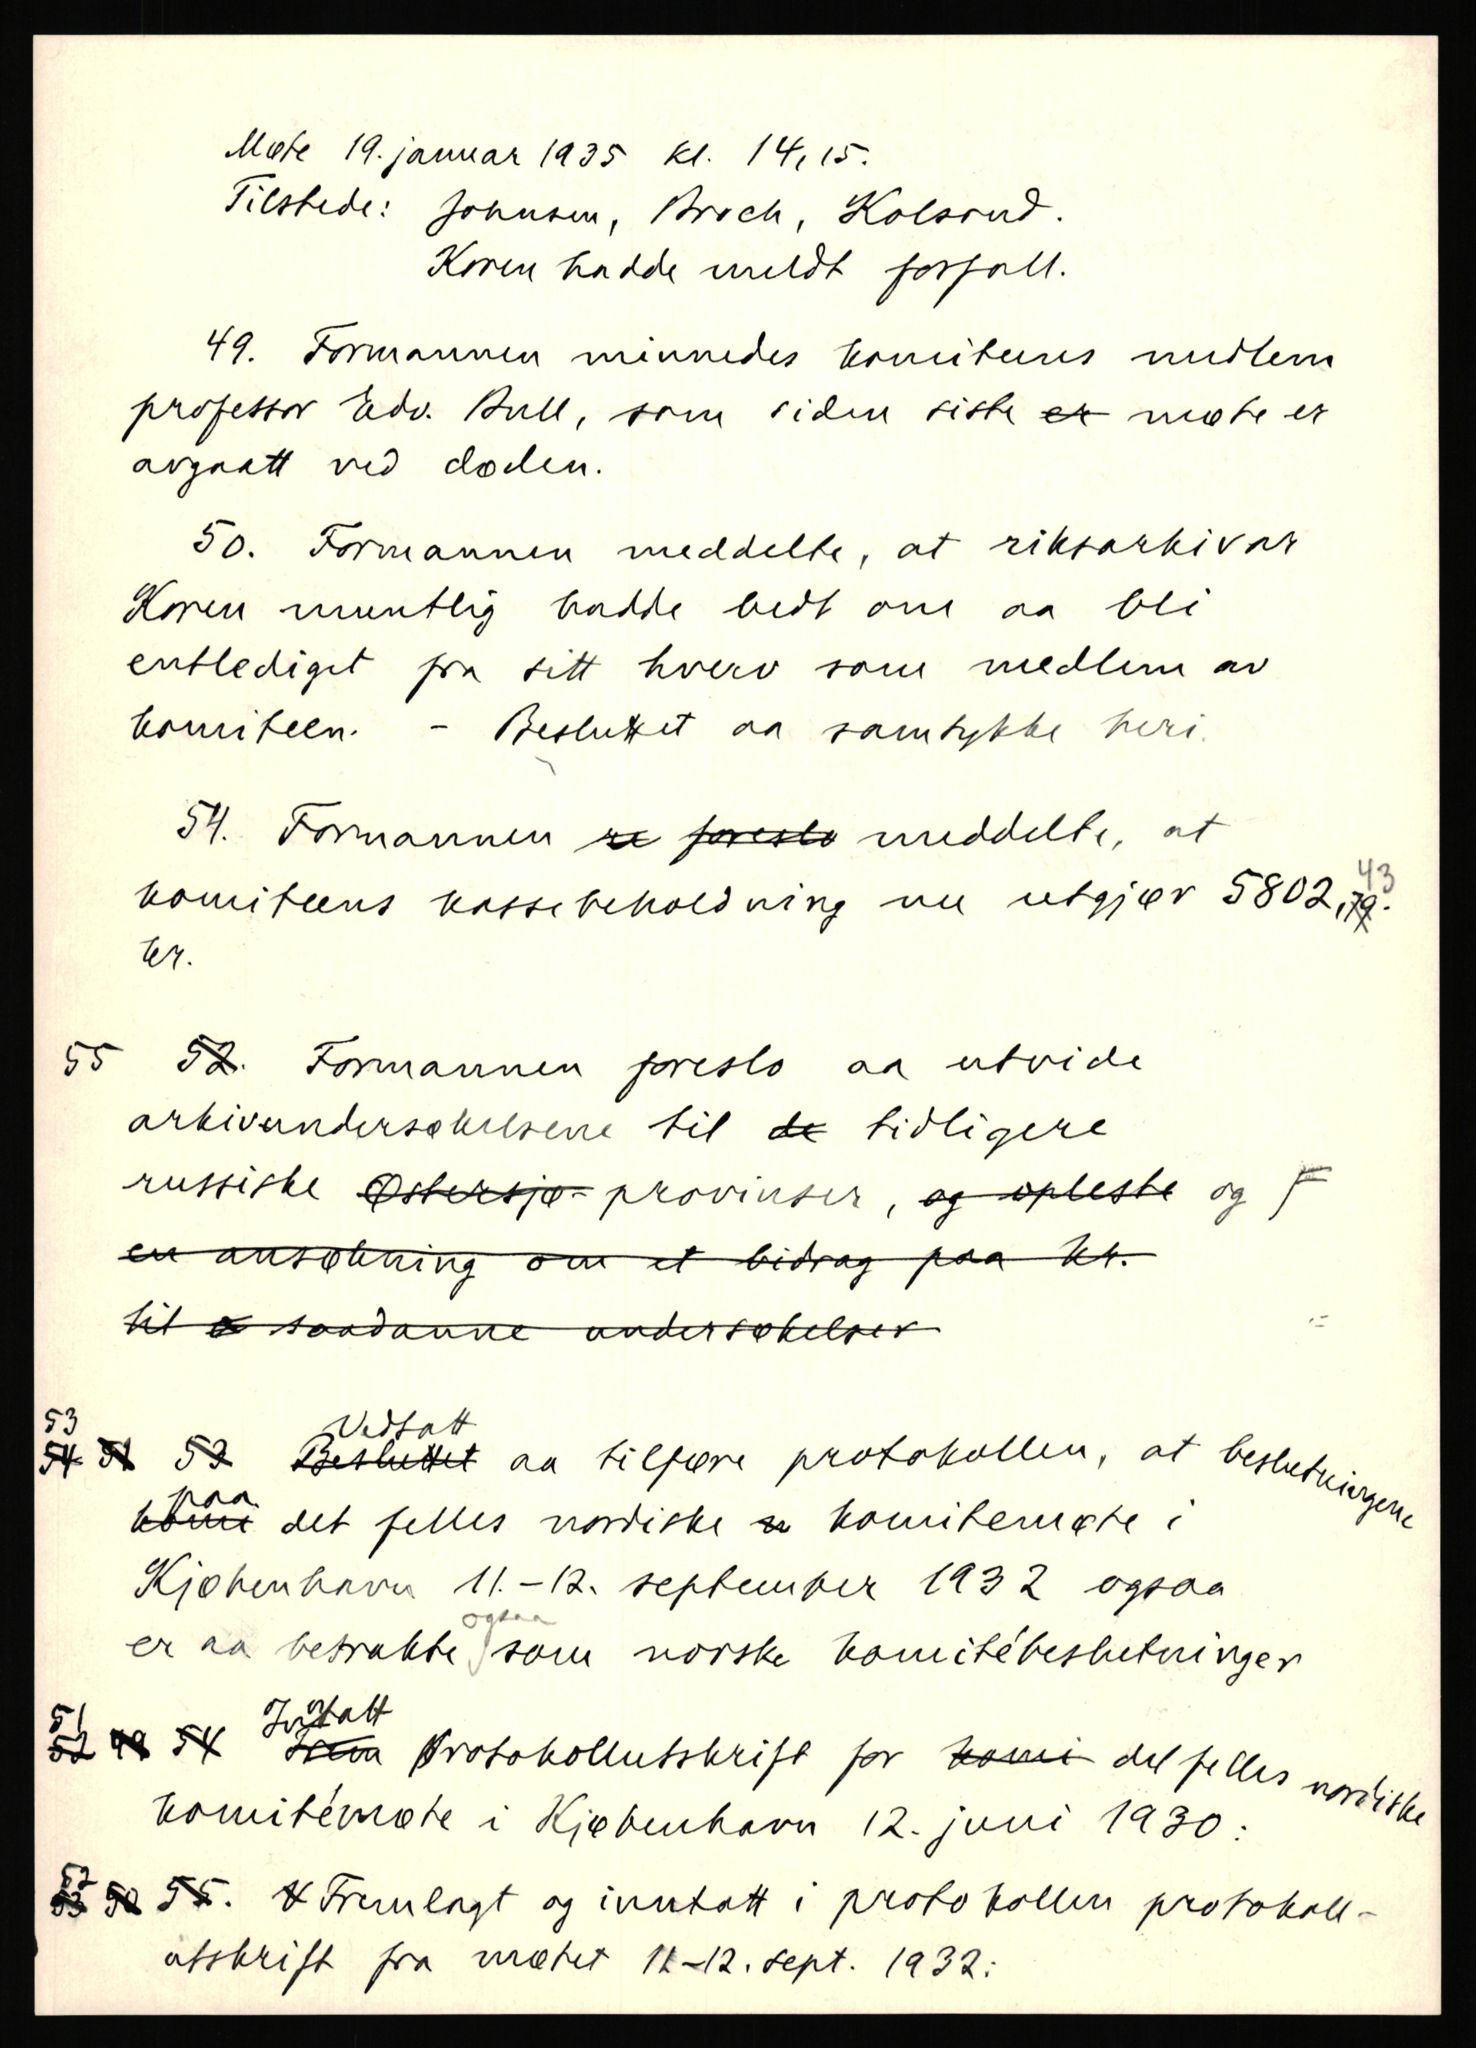 Møte 19. januar 1935 kl. 14,15.
Tilstede: Johnsen, Broch, Kolsrud.
Koren hadde meldt forfall.
49. Formannen minnedes komiteens medlem
professor Edv. Bull, som siden siste er møte er
avgaatt ved døden.
50. Formannen meddelte, at riksarkivar
Koren muntlig hadde bedt om aa bli
entlediget fra sitt hverv som medlem av
komiteen. - Besluttet aa samtykke heri.
54. Formannen re foreslo meddelte, at
43
komiteens kassebeholdning nu utgjør 5802,79.
kr.
55 52. Formannen foreslo aa utvide
arkivundersøkelsene til de tidligere
russiske Østersjø-provinser, og opleste og F
en ansøkning om et bidrag paa kr.
til saadanne undersøkelser
53 Vedtatt
54 51 52 Besluttet aa tilføre protokollen, at beslutningene
paa
komi det felles nordiske komitemøte i
Kjøbenhavn 11.-12. september 1932 ogsaa
ogsaa
er aa betrakte som norske komitébeslutninger
51 Inntatt
52 49 54 Frem Protokollutskrift for komi det felles nordiske
komitémøte i Kjøbenhavn 12. juni 1930:
52
53 50 55. Fremlagt og inntatt i protokollen protokoll-
utskrift fra møtet 11-12. sept. 1932: